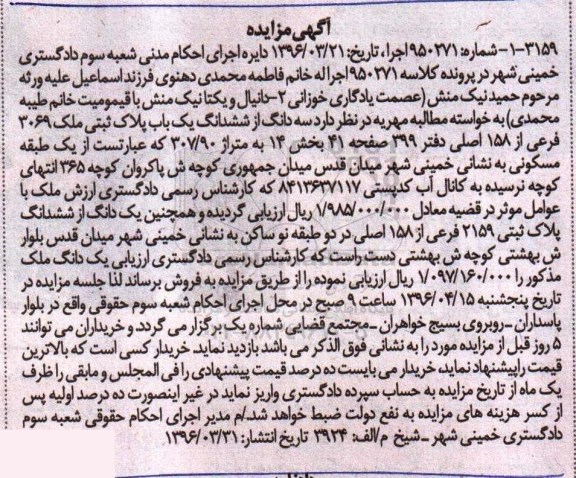 آگهی مزایده
۳۱۵۹-۱- شماره: ۹۵۰۲۷۱ اجرا، تاریخ: ۱۳۹۶/۰۳/۲۱ دایره اجرای احکام مدنی شعبه سوم دادگستری
خمینی شهر در پرونده کلاسه ۹۵۰۲۷۱ اجرا له خانم فاطمه محمدی دهنوی فرزند اسماعیل علیه ورثه
مرحوم حمید نیک منش (عصمت یادگاری خوزانی ۲-دانیال و یکتا نیک منش با قیمومیت خانم طیبه
محمدی) به خواسته مطالبه مهریه در نظر دارد سه دانگ از ششدانگ یک باب پلاک ثبتی ملک ۳۰۶۹
فرعی از ۱۵۸ اصلی دفتر ۳۹۹ صفحه ۴۱ بخش ۱۴ به متراژ ۳۰۷/۹۰ که عبارتست از یک طبقه
مسکونی به نشانی خمینی شهر میدان قدس میدان جمهوری کوچه ش پاکروان کوچه ۳۶۵ انتهای
کوچه نرسیده به کانال آب کدپستی ۸۴۱۳۶۳۷۱۱۷ که کارشناس رسمی دادگستری ارزش ملک با
عوامل موثر در قضیه معادل ۱/۹۸۵/۰۰۰/۰۰۰ ریال ارزیابی گردیده و همچنین یک دانگ از ششدانگ
پلاک ثبتی ۲۱۵۹ فرعی از ۱۵۸ اصلی در دو طبقه نو ساکن به نشانی خمینی شهر میدان قدس بلوار
ش بهشتی کوچه ش بهشتی دست راست که کارشناس رسمی دادگستری ارزیابی یک دانگ ملک
مذکور را ۱/۰۹۷/۱۶۰/۰۰۰ ریال ارزیابی نموده را از طریق مزایده به فروش برساند لذا جلسه مزایده در
تاریخ پنجشنبه ۱۳۹۶/۰۴/۱۵ ساعت ۹ صبح در محل اجرای احکام شعبه سوم حقوقی واقع در بلوار
پاسداران ـ روبروی بسیج خواهران ـ مجتمع قضایی شماره یک برگزار می گردد و خریداران می توانند
۵ روز قبل از مزایده مورد را به نشانی فوق الذکر می باشد بازدید نماید. خریدار کسی است که بالاترین
قیمت را پیشنهاد نماید، خریدار می بایست ده درصد قیمت پیشنهادی را فی المجلس و مابقی را ظرف
یک ماه از تاریخ مزایده به حساب سپرده دادگستری واریز نماید در غیر اینصورت ده درصد اولیه پس
از کسر هزینه های مزایده به نفع دولت ضبط خواهد شد./م مدیر اجرای احکام حقوقی شعبه سوم
دادگستری خمینی شهر ـ شیخ م/الف: ۲۹۲۴ تاریخ انتشار: ۱۳۹۶/۰۳/۳۱